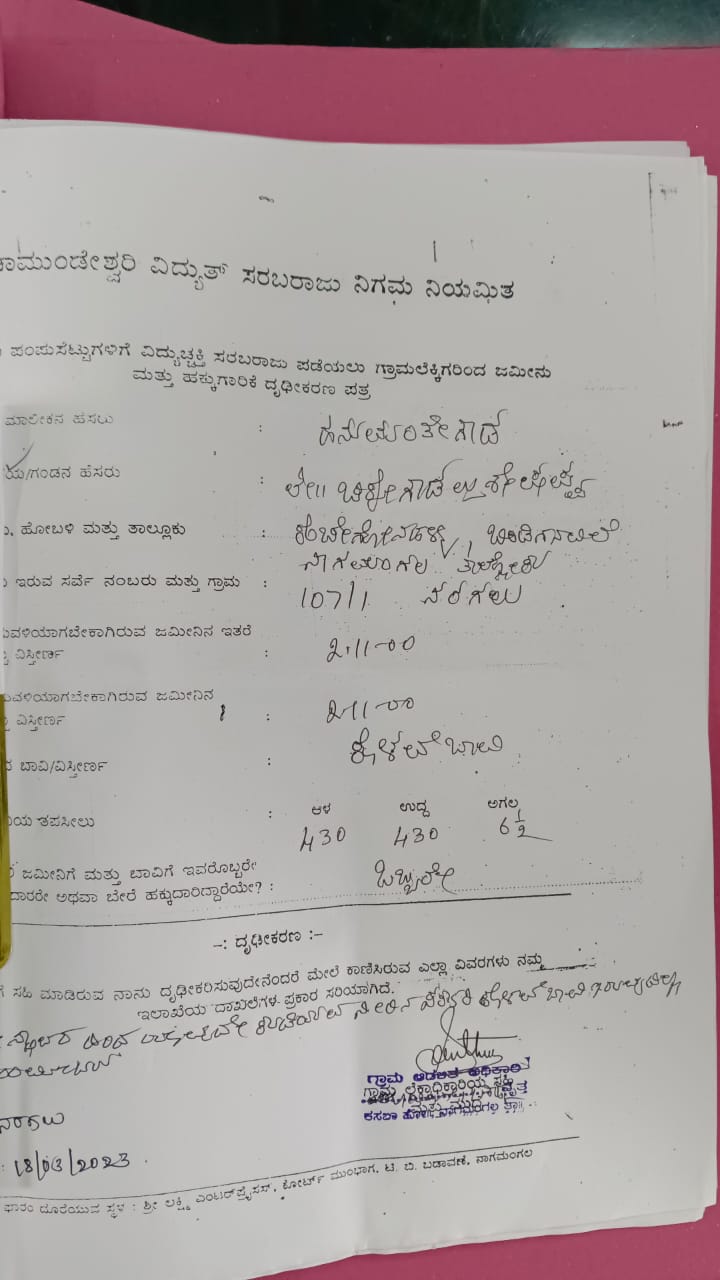 ಚಾಮುಂಡೇಶ್ವರಿ ವಿದ್ಯುತ್ ಸರಬರಾಜು ನಿಗಮ ನಿಯಮಿತ
ಪಂಪುಸೆಟ್ಟುಗಳಿಗೆ ವಿದ್ಯುಚ್ಛಕ್ತಿ ಸರಬರಾಜು ಪಡೆಯಲು ಗ್ರಾಮಲೆಕ್ಕಿಗರಿಂದ ಜಮೀನು
ಮತ್ತು ಹಕ್ಕುಗಾರಿಕೆ ದೃಢೀಕರಣ ಪತ್ರ
ಮಾಲೀಕನ ಹೆಸರು : ಹನುಮಂತೇಗೌಡ
ಯ/ಗಂಡನ ಹೆಸರು : ಲೇ॥
, ಹೋಬಳಿ ಮತ್ತು ತಾಲ್ಲೂಕು : ಬಿಂಡಿಗನವಿಲೆ
ನಾಗಮಂಗಲ ತಾಲ್ಲೋಕು
ಇರುವ ಸರ್ವೆ ನಂಬರು ಮತ್ತು ಗ್ರಾಮ : 107/1 ನರಗಲು
ುವಳಿಯಾಗಬೇಕಾಗಿರುವ ಜಮೀನಿನ ಇತರೆ
ವಿಸ್ತೀರ್ಣ : 2-11-00
ುವಳಿಯಾಗಬೇಕಾಗಿರುವ ಜಮೀನಿನ
ವಿಸ್ತೀರ್ಣ : 2-11-00
ನ ಬಾವಿ/ವಿಸ್ತೀರ್ಣ : ಕೊಳವೆ ಬಾವಿ
ಿಯ ತಪಸೀಲು : ಆಳ ಉದ್ದ ಅಗಲ
430 430 6 1/2
ಜಮೀನಿಗೆ ಮತ್ತು ಬಾವಿಗೆ ಇವರೊಬ್ಬರೇ
ದಾರರೇ ಅಥವಾ ಬೇರೆ ಹಕ್ಕುದಾರಿದ್ದಾರೆಯೇ? : ಒಬ್ಬರೇ
-: ದೃಢೀಕರಣ :-
ಸಹಿ ಮಾಡಿರುವ ನಾನು ದೃಢೀಕರಿಸುವುದೇನೆಂದರೆ ಮೇಲೆ ಕಾಣಿಸಿರುವ ಎಲ್ಲಾ ವಿವರಗಳು ನಮ್ಮ
ಇಲಾಖೆಯ ದಾಖಲೆಗಳ ಪ್ರಕಾರ ಸರಿಯಾಗಿದೆ.
ಕುಡಿಯುವ ನೀರಿನ ಕೊಳವೆ ಬಾವಿ
ಗ್ರಾಮ ಆಡಳಿತ ಅಧಿಕಾರಿ
ಗ್ರಾಮ ಲೆಕ್ಕಾಧಿಕಾರಿಯ ಸಹಿ
ಕಸಬಾ ಹೋ॥ ನಾಗಮಂಗಲ ತಾ॥
ನರಗಲು
: 18/03/2023
ಫಾರಂ ದೊರೆಯುವ ಸ್ಥಳ : ಶ್ರೀ ಲಕ್ಷ್ಮಿ ಎಂಟರ್‌ಪ್ರೈಸಸ್, ಕೋರ್ಟ್ ಮುಂಭಾಗ, ಟಿ. ಬಿ. ಬಡಾವಣೆ, ನಾಗಮಂಗಲ